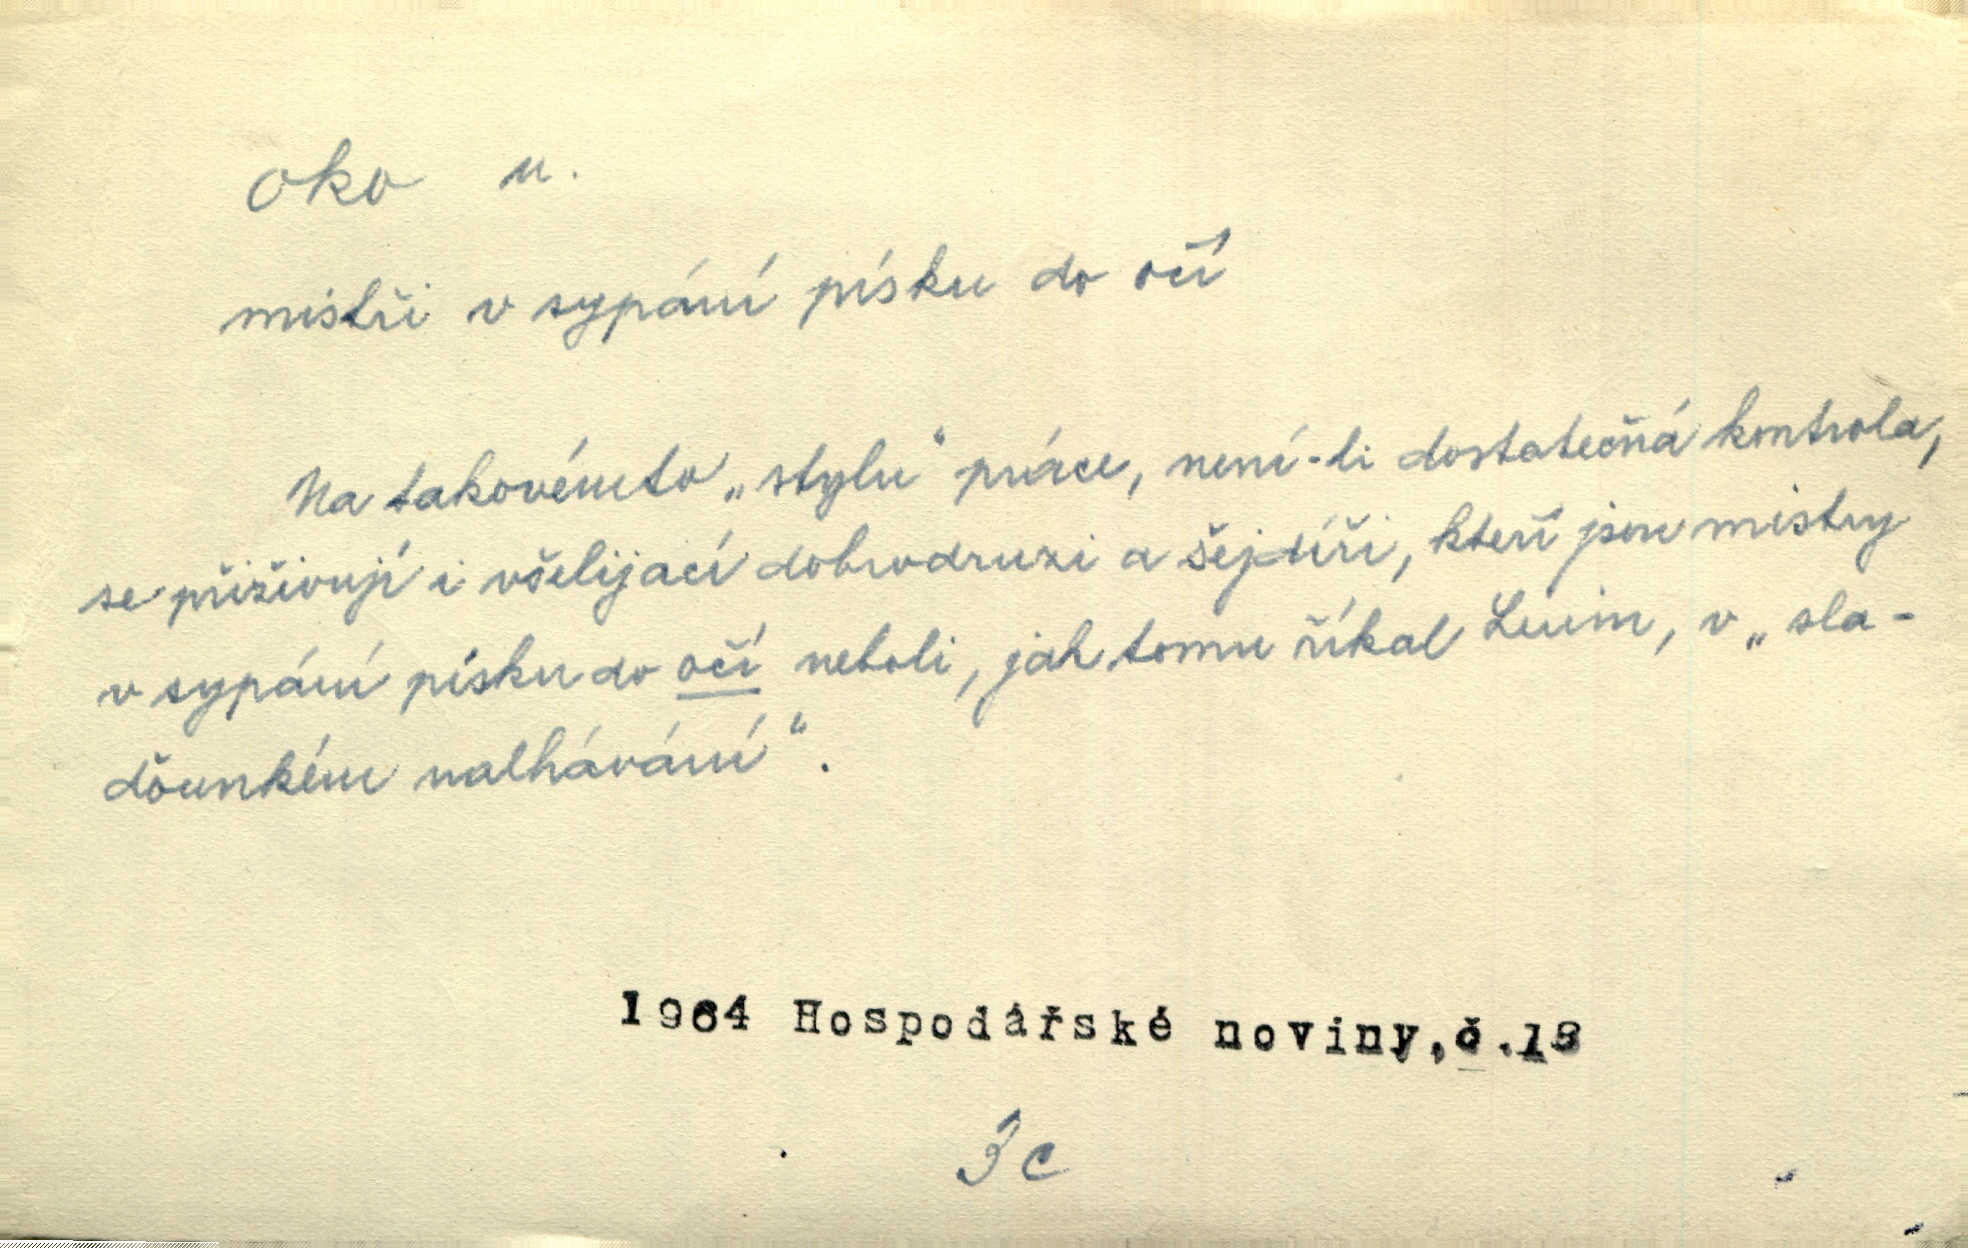 oko n.
mistři v sypání písku do očí
Na takovémto „stylu“ práce, není-li dostatečná kontrola,
se přiživují i všelijací dobrodruzi a šejdíři, kteří jsou mistry
v sypání písku do očí neboli, jak tomu říkal Lenin, v „sla-
ďounkém nalhávání“.
1964 Hospodářské noviny, č.18
3c